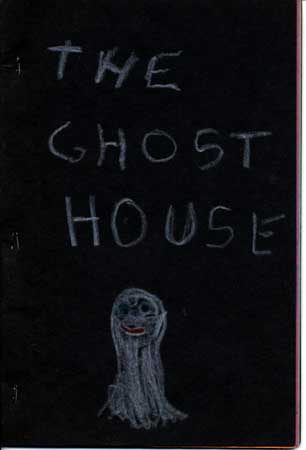 THE
GHOST
HOUSE